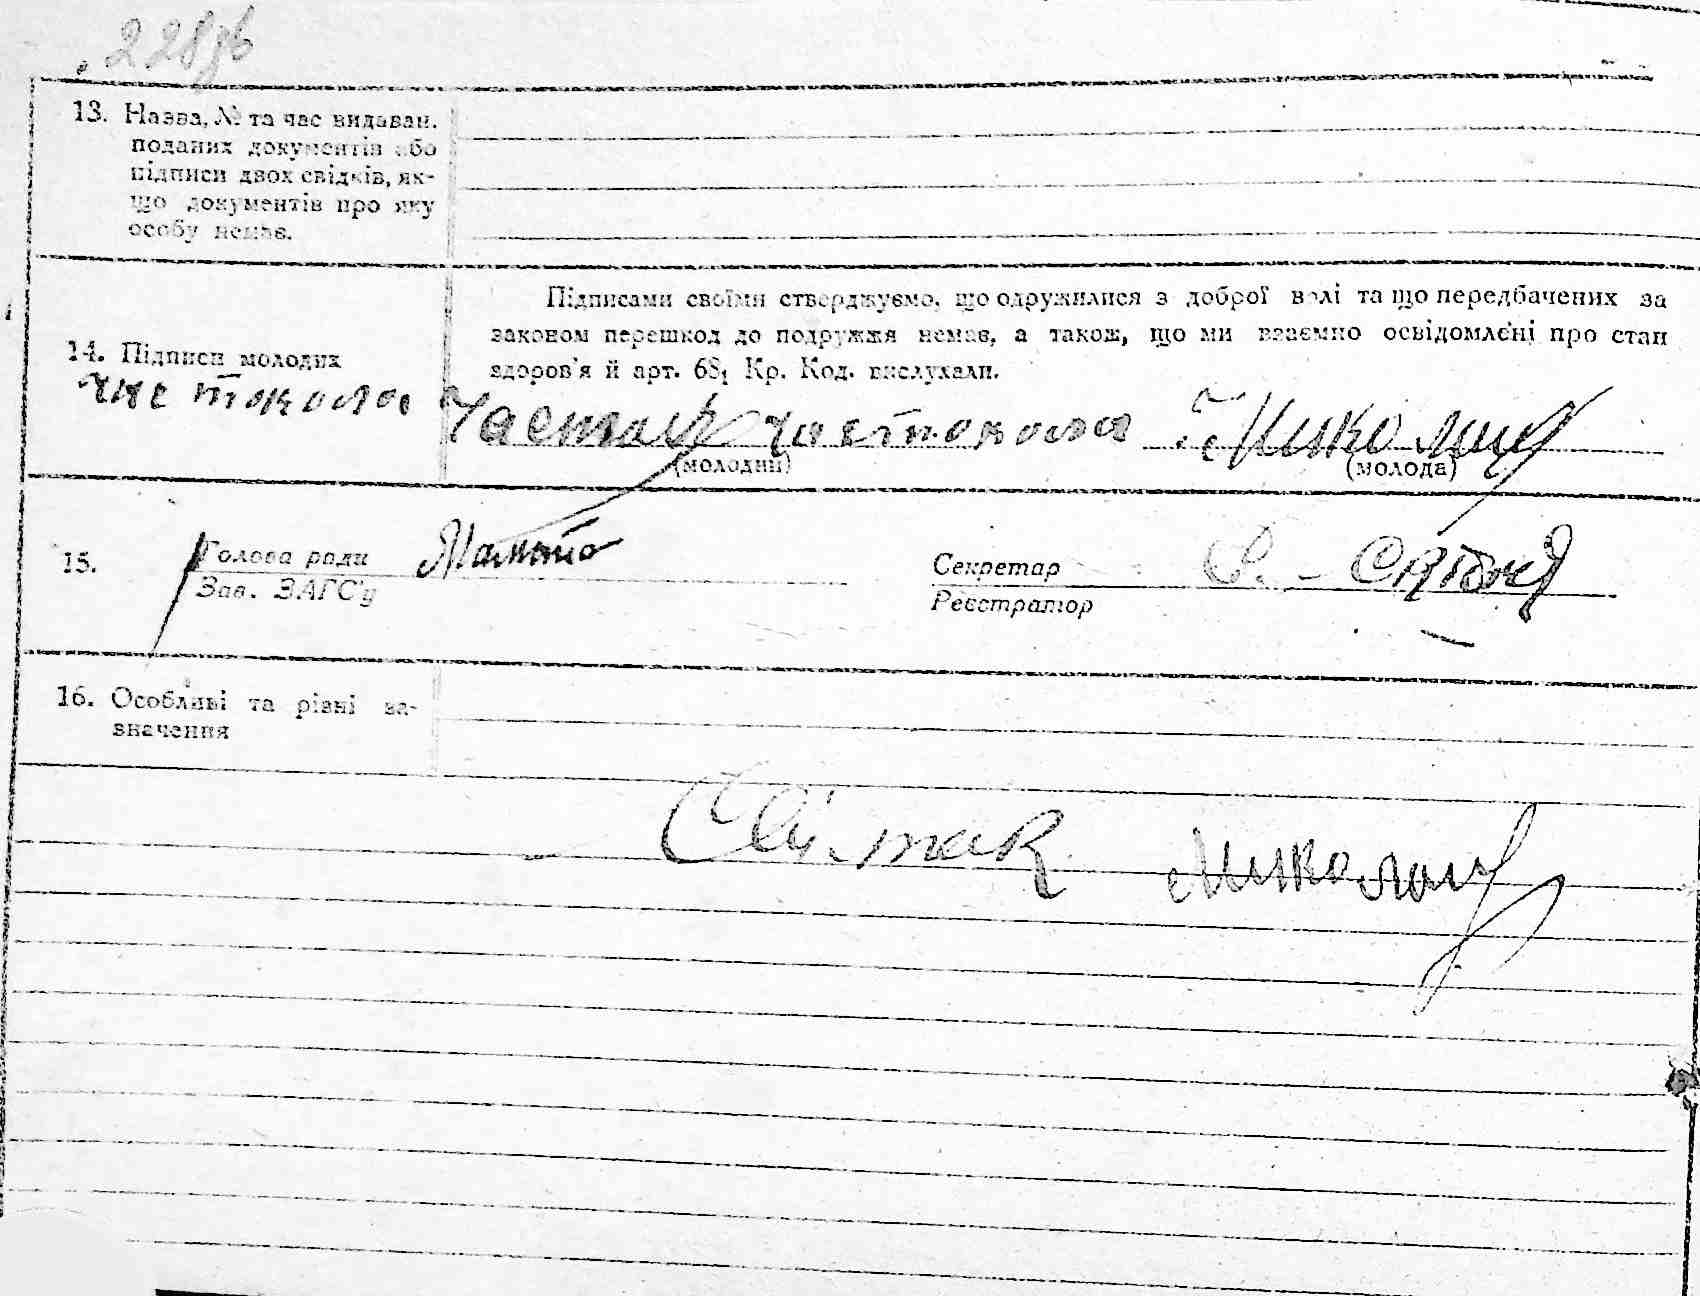 228зв
13. Назва, № та час видаван.
поданих документів або
підписи двох свідків, як-
що документів про яку
особу немає.
Підписами своїми стверджуємо, що одружилися з доброї волі та що передбачених за
законом перешкод до подружжя немає, а також, що ми взаємно освідомлені про стан
здоров'я й арт. 68₁ Кр. Код. вислухали.
14. Підписи молодих
частокола
(молодий) (молода)
15. Голова ради
Зав. ЗАГС'у
Секретар
Реєстратор
16. Особливі та різні за-
значення